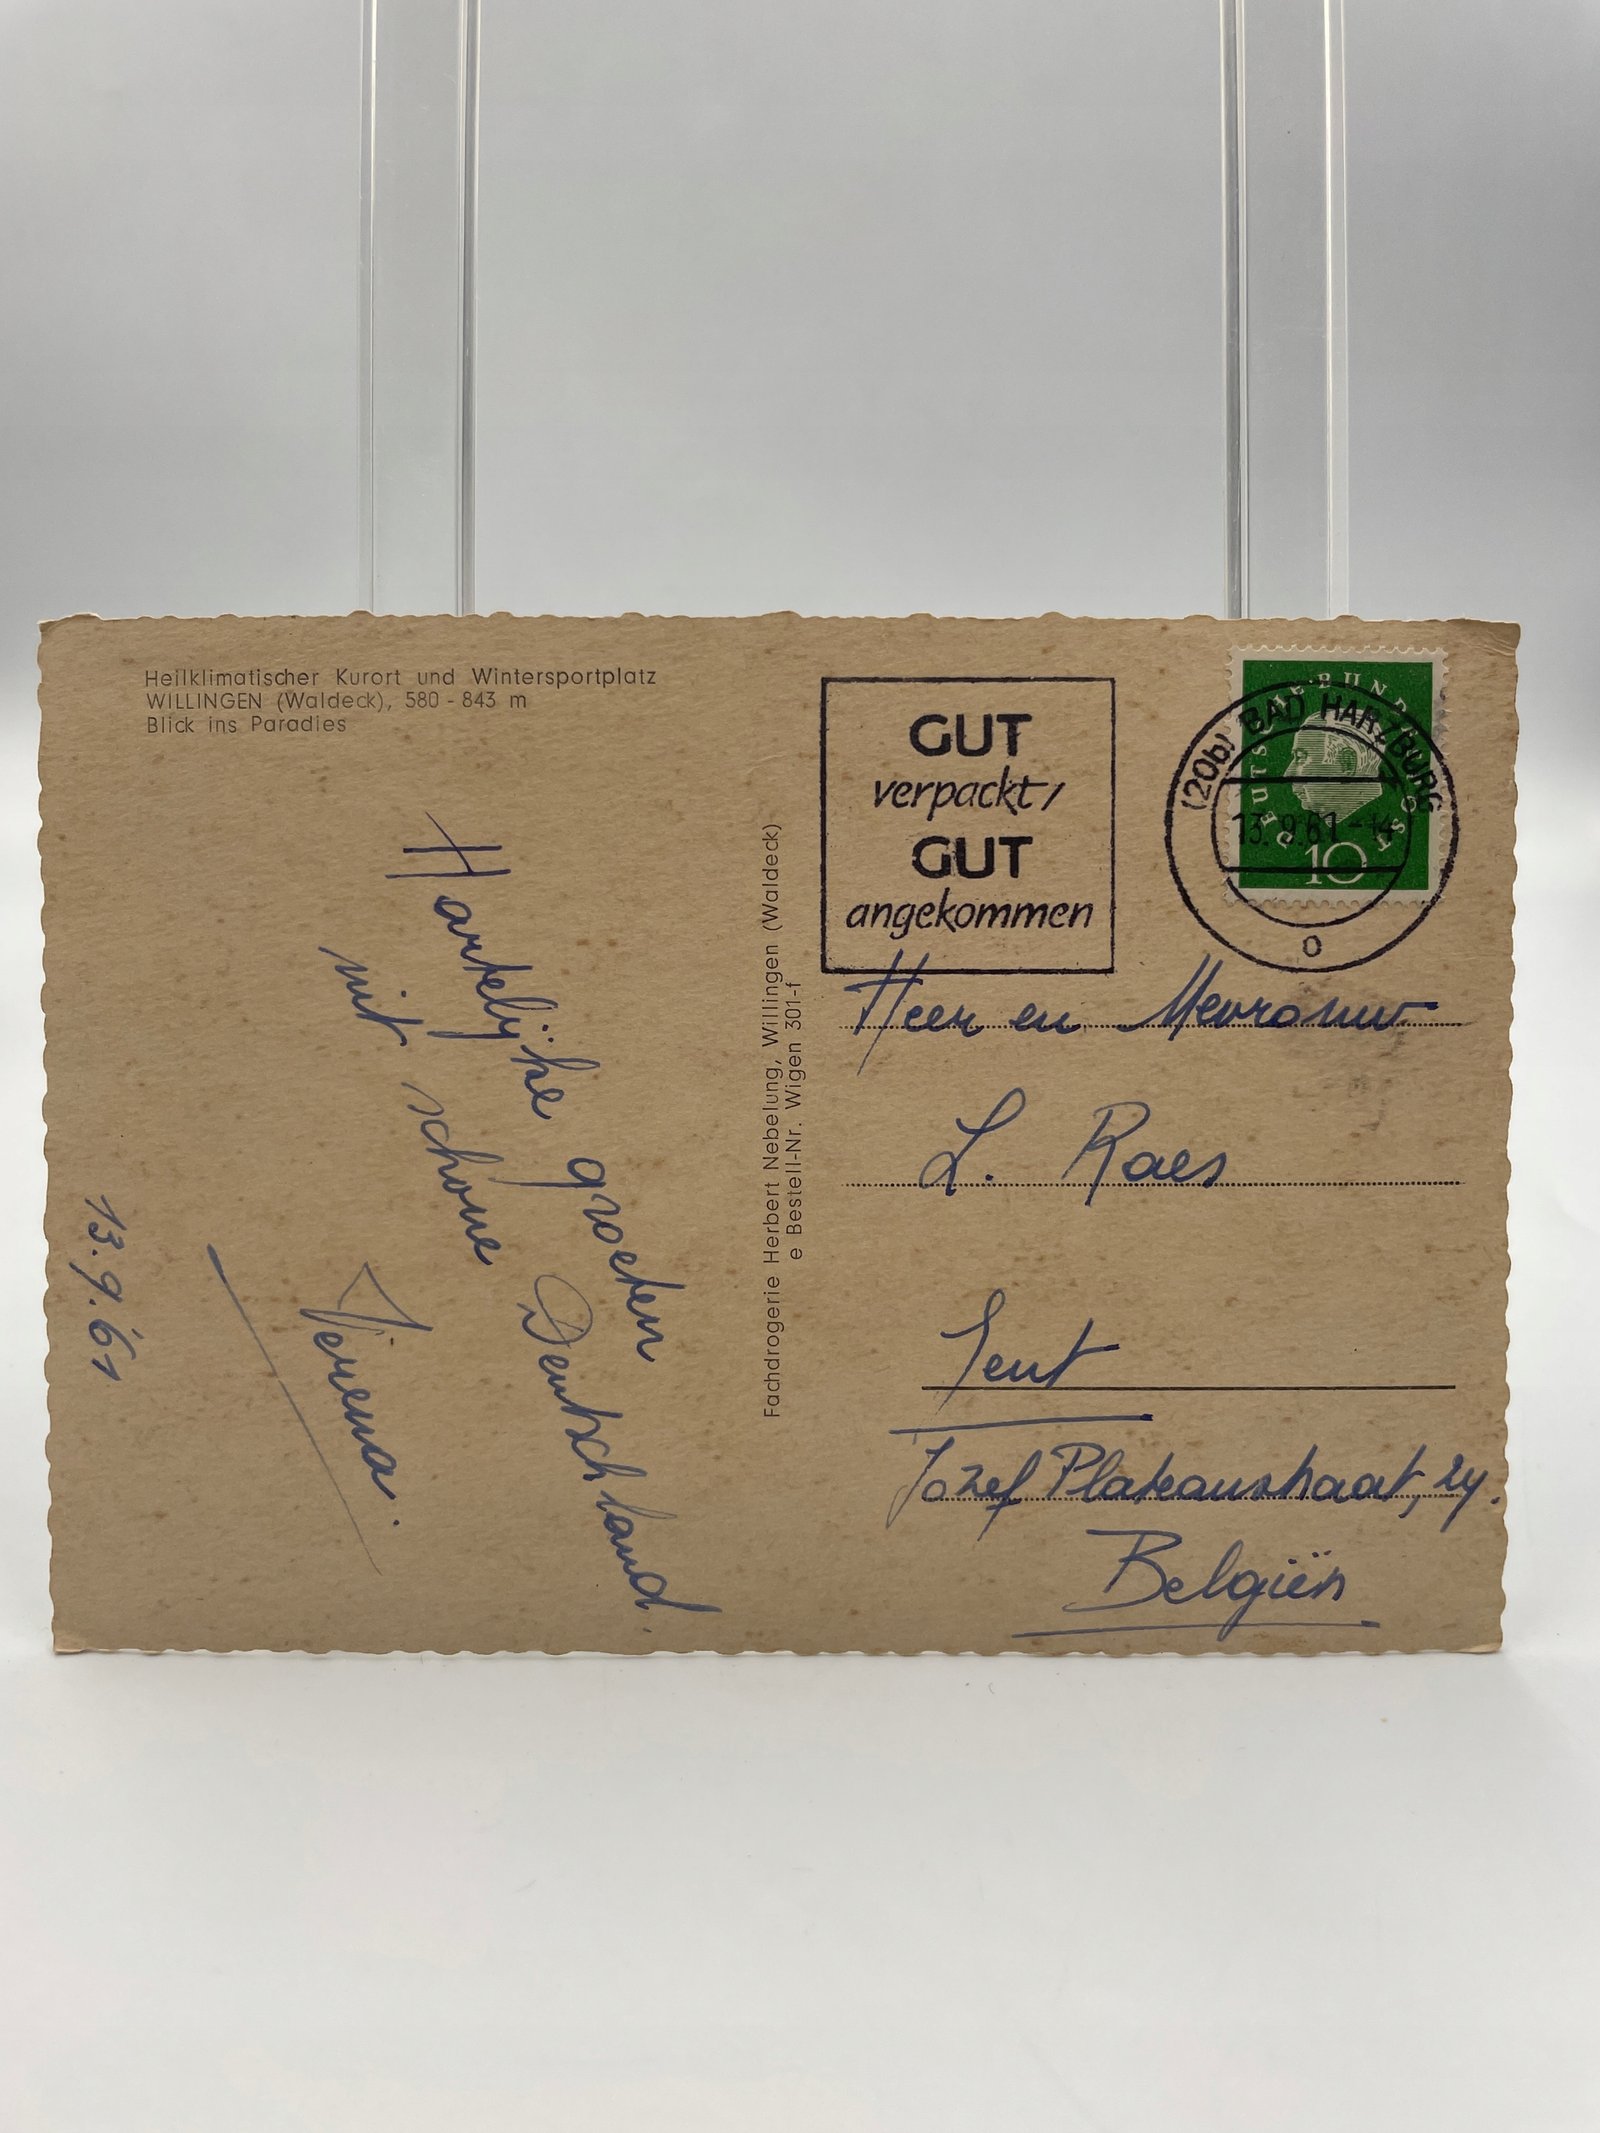 Heilklimatischer Kurort und Wintersportplatz
WILLINGEN (Waldeck), 580 - 843 m
Blick ins Paradies
Hartelijke groeten
uit schone Deutschland.
13.9.61
Fachdrogerie Herbert Nebelung, Willingen (Waldeck)
e Bestell-Nr. Wigen 301-f
GUT
verpackt/
GUT
angekommen
DEUTSCHE BUNDESPOST
10
(20b) BAD HARZBURG
13.9.61-14
o
Heer en Mevrouw
L. Raes
Gent
Jozef Plateaustraat,
Belgiën